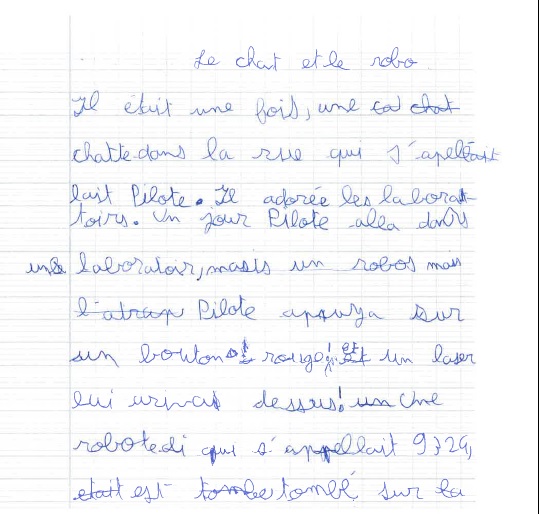 Le chat et le robo
Il était une fois, une cat chat
chatte dans la rue qui s'apelléait
lait Pilote. Il adorée les laborat-
toirs. Un jour Pilote alla dans
un laboratoir, mais un robos mais
l'atrap Pilote apuya sur
un bouton rouge! et un laser
lui arivas dessus! un Une
robote di qui s'appellait
etait est tombe tombé sur la